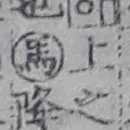 馬上
降之